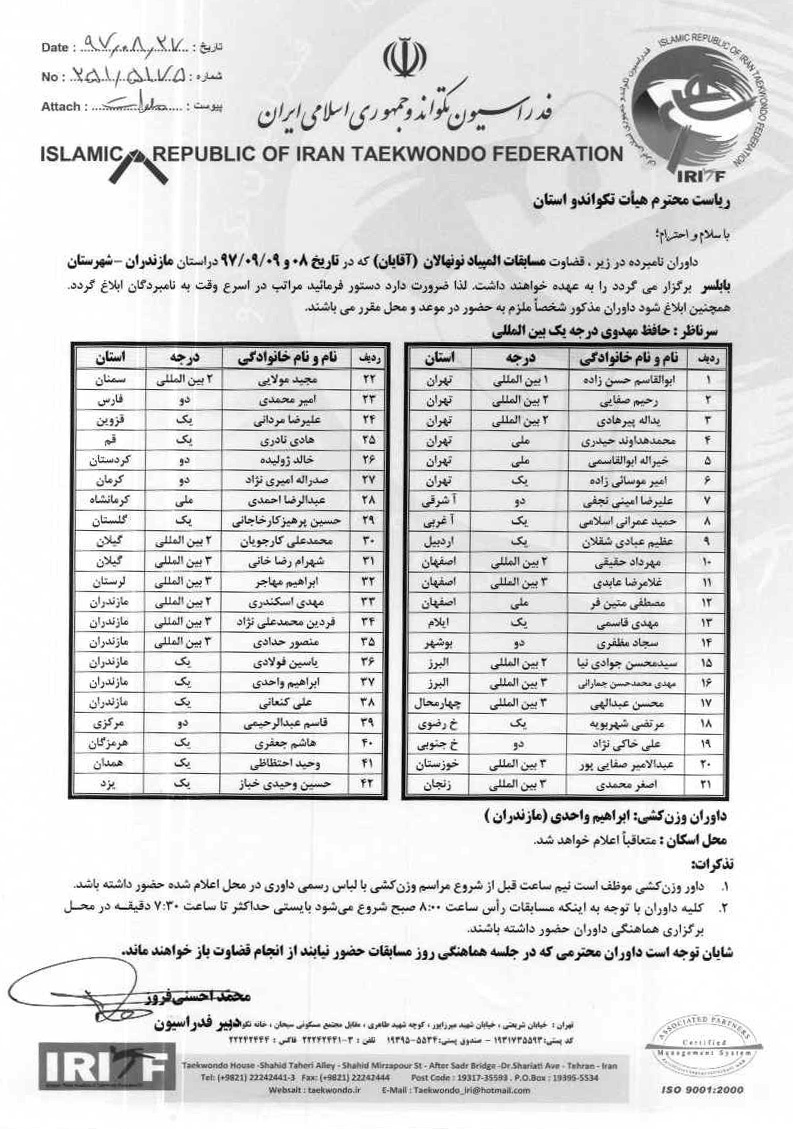 Date : ۹۷,۰۸,۲۷ : تاریخ
No : ۲۵۱/۵۱۷۵ : شماره
Attach : : پیوست
فدراسیون تکواندو جمهوری اسلامی ایران
ISLAMIC REPUBLIC OF IRAN TAEKWONDO FEDERATION
ISLAMIC REPUBLIC OF IRAN TAEKWONDO FEDERATION
فدراسیون تکواندو جمهوری اسلامی ایران
IRITF
ریاست محترم هیأت تکواندو استان
با سلام و احترام؛
داوران نامبرده در زیر ، قضاوت مسابقات المپیاد نونهالان (آقایان) که در تاریخ ۰۸ و ۹۷/۰۹/۰۹ دراستان مازندران –شهرستان
بابلسر برگزار می گردد را به عهده خواهند داشت. لذا ضرورت دارد دستور فرمائید مراتب در اسرع وقت به نامبردگان ابلاغ گردد.
همچنین ابلاغ شود داوران مذکور شخصاً ملزم به حضور در موعد و محل مقرر می باشند.
سرناظر : حافظ مهدوی درجه یک بین المللی
ردیف نام و نام خانوادگی درجه استان
۱ ابوالقاسم حسن زاده ۱ بین المللی تهران
۲ رحیم صفایی ۲ بین المللی تهران
۳ یداله پیرهادی ۲ بین المللی تهران
۴ محمدهداوند حیدری ملی تهران
۵ خیراله ابوالقاسمی ملی تهران
۶ امیر موسائی زاده یک تهران
۷ علیرضا امینی نجفی دو آ شرقی
۸ حمید عمرانی اسلامی یک آ غربی
۹ عظیم عبادی شقلان یک اردبیل
۱۰ مهرداد حقیقی ۲ بین المللی اصفهان
۱۱ غلامرضا عابدی ۳ بین المللی اصفهان
۱۲ مصطفی متین فر ملی اصفهان
۱۳ مهدی قاسمی یک ایلام
۱۴ سجاد مظفری دو بوشهر
۱۵ سیدمحسن جوادی نیا ۲ بین المللی البرز
۱۶ مهدی محمدحسن جمارانی ۳ بین المللی البرز
۱۷ محسن عبدالهی ۳ بین المللی چهارمحال
۱۸ مرتضی شهربویه یک خ رضوی
۱۹ علی خاکی نژاد دو خ جنوبی
۲۰ عبدالامیر صفایی پور ۳ بین المللی خوزستان
۲۱ اصغر محمدی ۳ بین المللی زنجان
ردیف نام و نام خانوادگی درجه استان
۲۲ مجید مولایی ۲ بین المللی سمنان
۲۳ امیر محمدی دو فارس
۲۴ علیرضا مردانی یک قزوین
۲۵ هادی نادری یک قم
۲۶ خالد ژولیده دو کردستان
۲۷ صدراله امیری نژاد دو کرمان
۲۸ عبدالرضا احمدی ملی کرمانشاه
۲۹ حسین پرهیزکارخاجانی یک گلستان
۳۰ محمدعلی کارجویان ۲ بین المللی گیلان
۳۱ شهرام رضا خانی ۳ بین المللی گیلان
۳۲ ابراهیم مهاجر ۳ بین المللی لرستان
۳۳ مهدی اسکندری ۲ بین المللی مازندران
۳۴ فردین محمدعلی نژاد ۳ بین المللی مازندران
۳۵ منصور حدادی ۳ بین المللی مازندران
۳۶ یاسین فولادی یک مازندران
۳۷ ابراهیم واحدی یک مازندران
۳۸ علی کنعانی یک مازندران
۳۹ قاسم عبدالرحیمی دو مرکزی
۴۰ هاشم جعفری یک هرمزگان
۴۱ وحید احتظاظی یک همدان
۴۲ حسین وحیدی خباز یک یزد
داوران وزن‌کشی: ابراهیم واحدی (مازندران )
محل اسکان : متعاقباً اعلام خواهد شد.
تذکرات:
۱. داور وزن‌کشی موظف است نیم ساعت قبل از شروع مراسم وزن‌کشی با لباس رسمی داوری در محل اعلام شده حضور داشته باشد.
۲. کلیه داوران با توجه به اینکه مسابقات رأس ساعت ۸:۰۰ صبح شروع می‌شود بایستی حداکثر تا ساعت ۷:۳۰ دقیقه در محل
برگزاری هماهنگی داوران حضور داشته باشند.
شایان توجه است داوران محترمی که در جلسه هماهنگی روز مسابقات حضور نیابند از انجام قضاوت باز خواهند ماند.
محمد احسنی‌فروز
دبیر فدراسیون
تهران : خیابان شریعتی ، خیابان شهید میرزاپور ، کوچه شهید طاهری ، مقابل مجتمع مسکونی سبحان ، خانه تکو
کد پستی: ۱۹۳۱۷۳۵۵۹۳ - صندوق پستی: ۵۵۳۴-۱۹۳۹۵ تلفن : ۳-۲۲۲۴۲۴۴۱ فاکس : ۲۲۲۴۲۴۴۴
IRITF
Taekwondo House -Shahid Taheri Alley - Shahid Mirzapour St - After Sadr Bridge -Dr.Shariati Ave - Tehran - Iran
Tel: (+9821) 22242441-3 Fax: (+9821) 22242444 Post Code : 19317-35593 . P.O.Box : 19395-5534
Websait : taekwondo.ir E-Mail : Taekwondo_iri@hotmail.com
ASSOCIATED PARTNERS
Certified
Management System
ISO 9001:2000